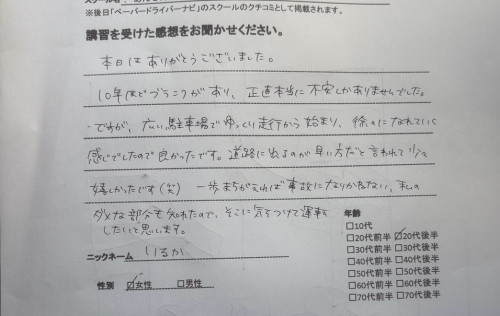 ※後日「ペーパードライバーナビ」のスクールのクチコミとして掲載されます。
講習を受けた感想をお聞かせください。
本日はありがとうございました。
10年ほどブランクがあり、正直本当に不安しかありませんでした。
ですが、広い駐車場でゆっくり走行から始まり、徐々になれていく
感じでしたので良かったです。道路に出るのが早い方だと言われて
嬉しかったです(笑) 一歩まちがえれば事故になりかねない、私の
ダメな部分も知れたので、そこに気をつけて運転
したいと思います。
ニックネーム いるか
性別 ☑女性 □男性
年齢
□10代
□20代前半 ☑20代後半
□30代前半 □30代後半
□40代前半 □40代後半
□50代前半 □50代後半
□60代前半 □60代後半
□70代前半 □70代後半